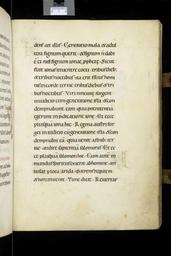 dens ait illis · Generatio mala et adul
tera signum querit · et signum n̄ dabi
t̄ ei nisi signum ionae pphetę · Sicut
fuit ionas in ventre ceti tribus dieb;
et tribus noctibus · sic erit filius homi
nis in corde terre tribus diebus et tri
bus noctibus · Viri ninevitę surgent
in iudicio cum generatione ista et con
demnabunt eam · quia penitentiā
egerunt in predicatione ionę · Et ecce
plusquā iona hic · Regina austri sur
get in iudicio cū generatione ista et con
demnabit eā · quia venit a finib; ter
re · audire sapientiā salomonis · Et ec
ce plusquā salomon hic · Cum autē in
mundus spiritus exierit ab homine am
bulat p loca arida querens requiem
et non invenit · Tunc dicit · Revertar